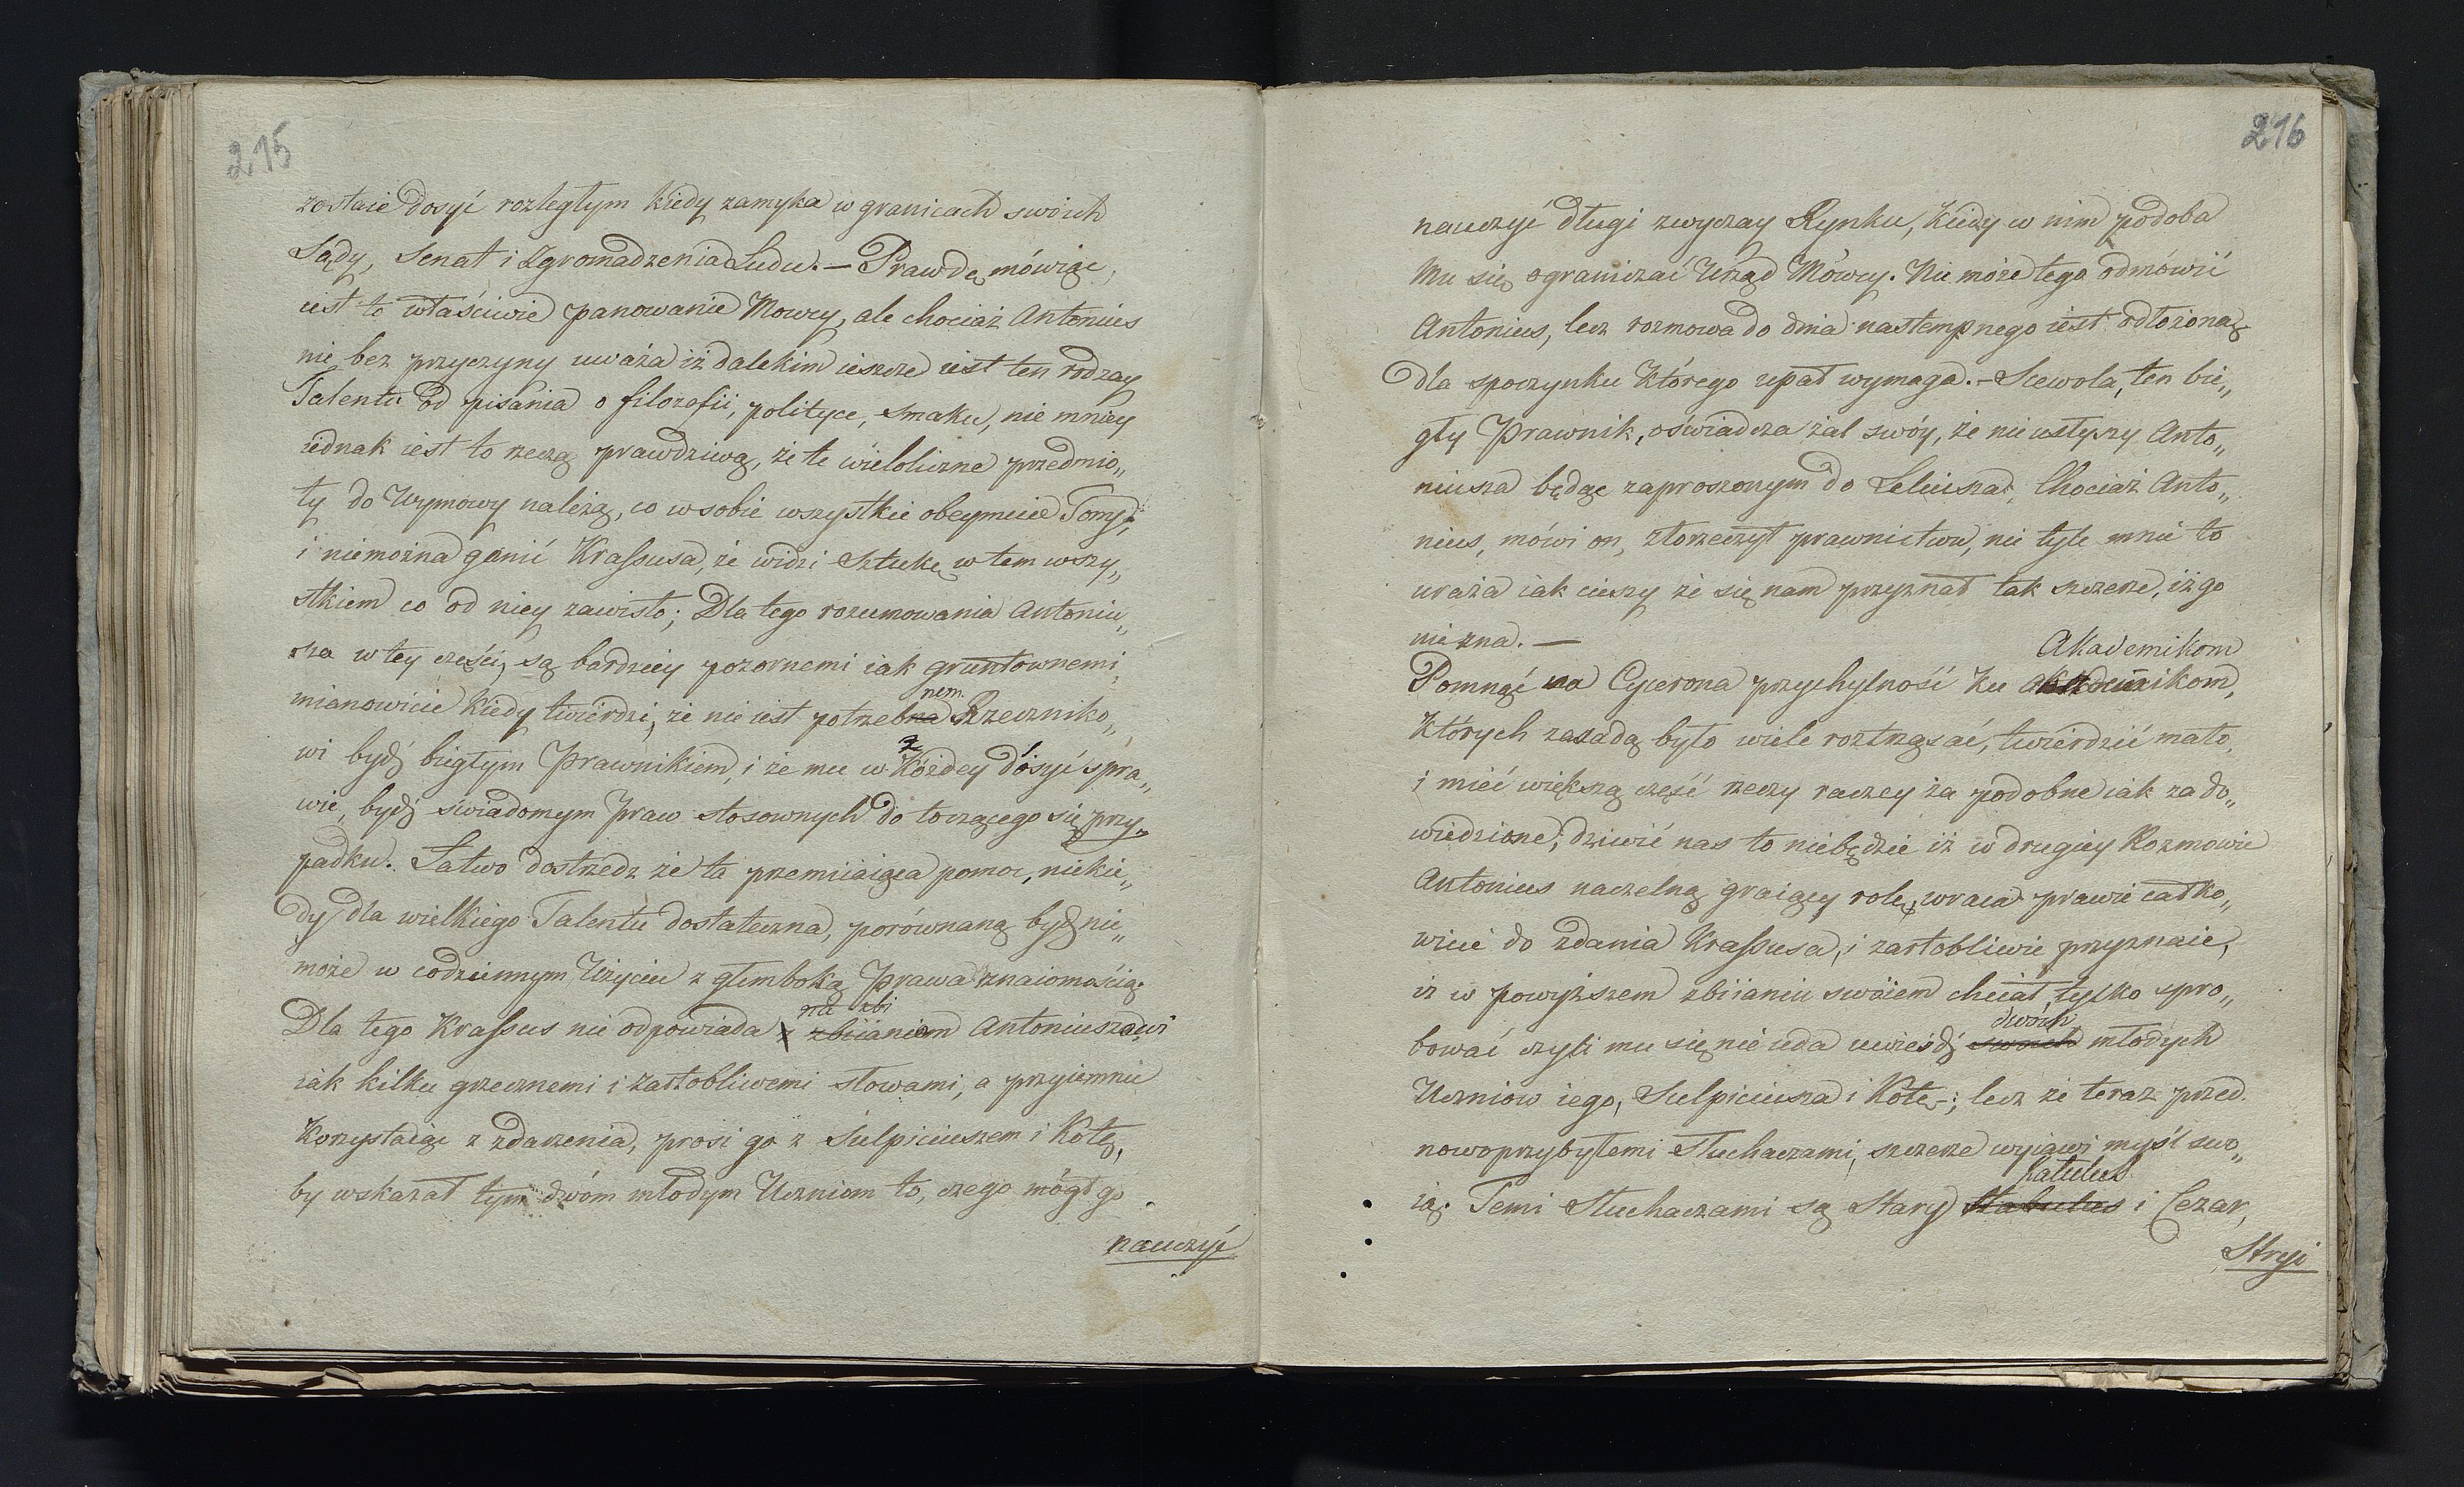 215
zostaie dosyć rozległym kiedy zamyka w granicach swóich
Sądy, Senat i Zgromadzenia Ludu. — Prawdę mówiąc,
iest to właściwie panowanie Mowcy, ale chociaż Antonius
nie bez przyczyny uważa iż dalekim ieszcze iest ten rodzay
Talentu od pisania o filozofii, polityce, smaku, nie mniey
iednak iest to rzeczą prawdziwą, że te wieloliczne przedmio„
ty do Wymowy należą, co w sobie wszystkie obeymuie Tomy,
i niemożna ganić Krassusa, że widzi Sztukę w tem wszy„
stkiem co od niey zawisło; Dla tego rozumowania Antoniu„
sza w tey części, są bardziey pozornemi iak gruntownemi,
nem.
mianowicie kiedy twierdzi, że nie iest potrzebna Rzeczniko„
wi bydź biegłym Prawnikiem, i że mu w Kóżdey dosyć spra„
wie, bydź świadomym Praw stosownych do toczącego się przy„
padku. Łatwo dostrzedz że ta przemiiaiąca pomoc, niekie„
dy dla wielkiego Talentu dostateczna, porównaną bydź nie„
może w codziennym Użyciu z głemboką Prawa znaiomością.
na zbi
Dla tego Krassus nie odpowiada z zbiianiem Antoniuszowi
iak kilku grzecznemi i żartobliwemi słowami, a przyiemnie
Korzystaiąc z zdarzenia, prosi go z Sulpiciuszem i Kotą,
by wskazał tym dwóm młodym Uczniom to, czego mógł go
nauczyć
216
nauczyć długi zwyczay Rynku, kiedy w nim podoba
Mu się ograniczać Urząd Mówcy. Nie może tego odmówić
Antonius, lecz rozmowa do dnia nastempnego iest odłożoną
dla spoczynku którego upał wymaga. — Scewola, ten bie„
gły Prawnik, oświadcza żal swóy, że nie usłyszy Anto„
niusza będąc zaproszonym do Leliusza; Chociaż Anto„
nius, mówi on, złorzeczył prawnictwu, nie tyle mnie to
uraża iak cieszy że się nam przyznał tak szczerze, iż go
nie zna. —
Akademikom
Pomnąć na Cycerona przychylność ku Akademikom,
Których zasadą było wiele roztrząsać, twierdzić mało,
i mieć większą część rzeczy raczey za podobne iak za do„
wiedzione; dziwić nas to niebędzie iż w drugiey Rozmowie
Antonius naczelną graiący rolę, wraca prawie całko„
wicie do zdania Krassusa, i żartobliwie przyznaie,
iż w powyższem zbiianiu swóiem chciał, tylko spro„
dwóch
bować czyli mu się nie uda uwieśdź swoich młodych
Uczniow iego, Sulpiciusza i Kotę; lecz że teraz przed
nowoprzybyłemi Słuchaczami, szczerze wyiawi myśl swo„
Catulus
ią. Temi Słuchaczami są Stary Stabulus i Cezar,
Stryi